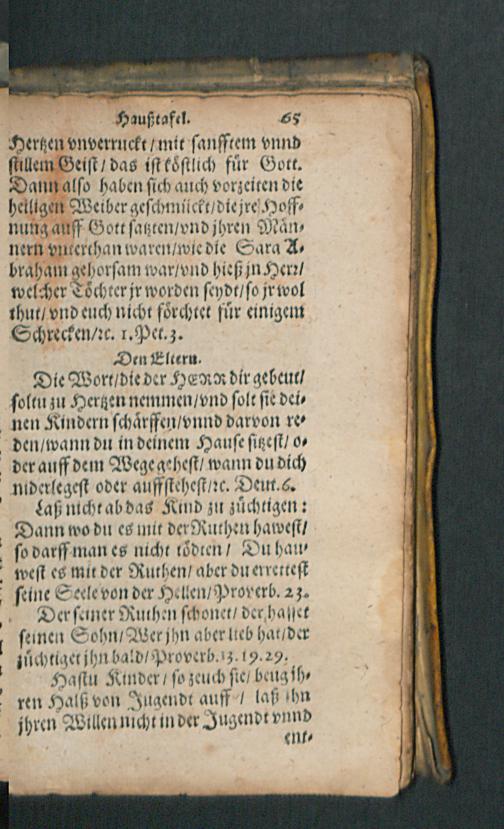 Haußtafel. 65
Hertzen vnverruckt / mit sanfftem vnnd
stillem Geist / das ist köstlich für Gott.
Dann also haben sich auch vorzeiten die
heiligen Weiber geschmückt / die jre Hoff-
nung auff Gott satzten / vnd jhren Män-
nern vnterthan waren / wie die Sara A-
braham gehorsam war / vnd hieß jn Herr /
welcher Töchter jr worden seydt / so jr wol
thut / vnd euch nicht förchtet für einigem
Schrecken / ꝛc. 1. Pet. 3.
Den Eltern.
Die Wort / die der HERR dir gebeut /
soltu zu Hertzen nemmen / vnd solt sie dei-
nen Kindern schärffen / vnnd darvon re-
den / wann du in deinem Hause sitzest / o-
der auff dem Wege gehest / wann du dich
niderlegest oder auffstehest / ꝛc. Deut. 6.
Laß nicht ab das Kind zu züchtigen :
Dann wo du es mit der Ruthen hawest /
so darff man es nicht tödten / Du hau-
west es mit der Ruthen / aber du errettest
seine Seele von der Hellen / Proverb. 23.
Der seiner Ruthen schonet / der hasset
seinen Sohn / Wer jhn aber lieb hat / der
züchtiget jhn bald / Proverb. 13. 19. 29.
Hastu Kinder / so zeuch sie / beug jh-
ren Halß von Jugendt auff / laß jhn
jhren Willen nicht in der Jugendt vnnd
ent-